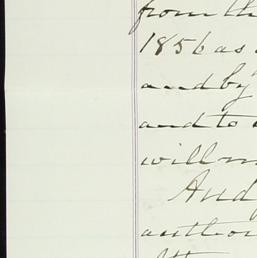 from th
1856 as
and by
and to
will m
And
autho